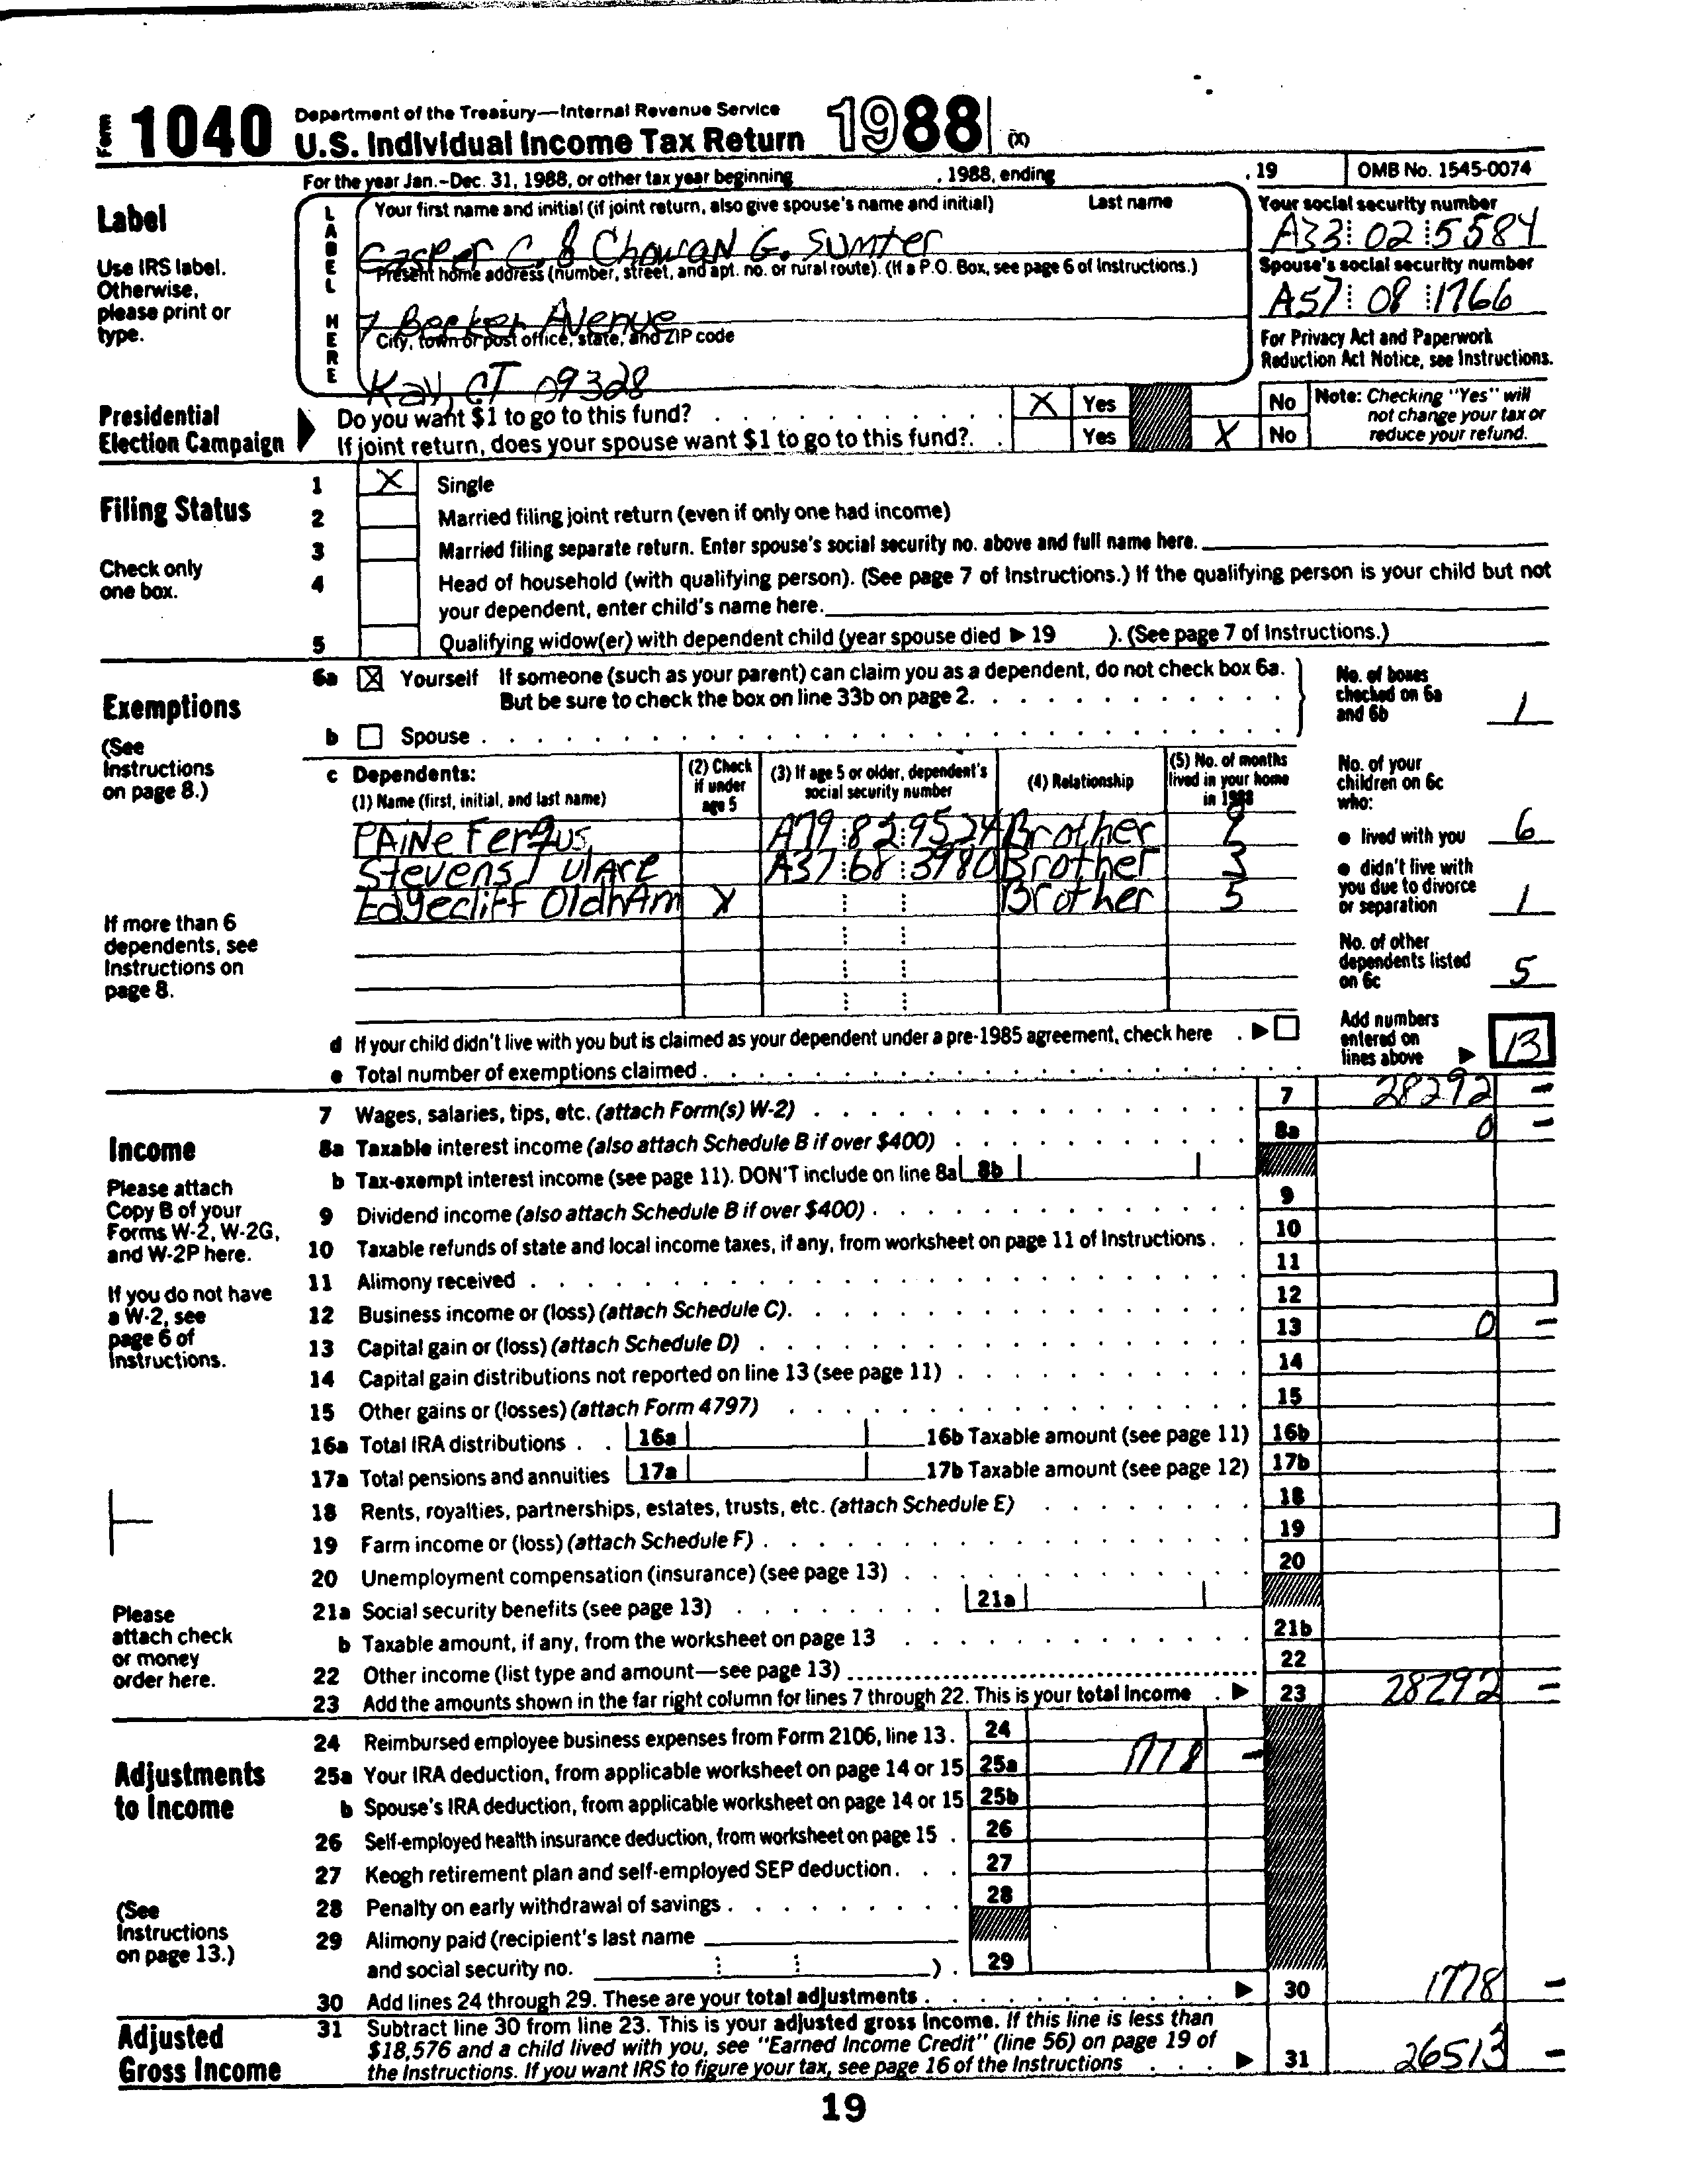 Form 1040 Department of the Treasury—Internal Revenue Service
U.S. Individual Income Tax Return 1988 (X)
For the year Jan.-Dec. 31, 1988, or other tax year beginning , 1988, ending , 19 OMB No. 1545-0074
Label
Use IRS label.
Otherwise,
please print or
type.
LABEL HERE
Your first name and initial (if joint return, also give spouse's name and initial) Last name
Casper C. & Chowan G. Sumter
Your social security number
A33 02 5584
Present home address (number, street, and apt. no. or rural route). (If a P.O. Box, see page 6 of Instructions.)
7 Becker Avenue
Spouse's social security number
A57 08 1766
City, town or post office, state, and ZIP code
Kay, CT 09328
For Privacy Act and Paperwork
Reduction Act Notice, see Instructions.
Presidential
Election Campaign
Do you want $1 to go to this fund? X Yes No
If joint return, does your spouse want $1 to go to this fund? Yes X No
Note: Checking "Yes" will
not change your tax or
reduce your refund.
Filing Status
Check only
one box.
1 X Single
2 Married filing joint return (even if only one had income)
3 Married filing separate return. Enter spouse's social security no. above and full name here.
4 Head of household (with qualifying person). (See page 7 of Instructions.) If the qualifying person is your child but not
your dependent, enter child's name here.
5 Qualifying widow(er) with dependent child (year spouse died ▶ 19 ). (See page 7 of Instructions.)
Exemptions
(See
Instructions
on page 8.)
6a X Yourself If someone (such as your parent) can claim you as a dependent, do not check box 6a.
But be sure to check the box on line 33b on page 2.
b Spouse
No. of boxes
checked on 6a
and 6b 1
c Dependents:
(1) Name (first, initial, and last name)
(2) Check
if under
age 5
(3) If age 5 or older, dependent's
social security number
(4) Relationship
(5) No. of months
lived in your home
in 1988
PAiNe Fergus A79 82 9524 Brother
Stevens Tulare A37 68 3980 Brother 3
Edgecliff OldhAm X Brother 5
No. of your
children on 6c
who:
● lived with you 6
● didn't live with
you due to divorce
or separation 1
No. of other
dependents listed
on 6c 5
If more than 6
dependents, see
Instructions on
page 8.
d If your child didn't live with you but is claimed as your dependent under a pre-1985 agreement, check here ▶
e Total number of exemptions claimed
Add numbers
entered on
lines above ▶ 13
Income
Please attach
Copy B of your
Forms W-2, W-2G,
and W-2P here.
If you do not have
a W-2, see
page 6 of
Instructions.
Please
attach check
or money
order here.
7 Wages, salaries, tips, etc. (attach Form(s) W-2) 7 28292 -
8a Taxable interest income (also attach Schedule B if over $400) 8a 0 -
b Tax-exempt interest income (see page 11). DON'T include on line 8a 8b
9 Dividend income (also attach Schedule B if over $400) 9
10 Taxable refunds of state and local income taxes, if any, from worksheet on page 11 of Instructions 10
11 Alimony received 11
12 Business income or (loss) (attach Schedule C) 12
13 Capital gain or (loss) (attach Schedule D) 13 0 -
14 Capital gain distributions not reported on line 13 (see page 11) 14
15 Other gains or (losses) (attach Form 4797) 15
16a Total IRA distributions 16a 16b Taxable amount (see page 11) 16b
17a Total pensions and annuities 17a 17b Taxable amount (see page 12) 17b
18 Rents, royalties, partnerships, estates, trusts, etc. (attach Schedule E) 18
19 Farm income or (loss) (attach Schedule F) 19
20 Unemployment compensation (insurance) (see page 13) 20
21a Social security benefits (see page 13) 21a
b Taxable amount, if any, from the worksheet on page 13 21b
22 Other income (list type and amount—see page 13) 22
23 Add the amounts shown in the far right column for lines 7 through 22. This is your total income ▶ 23 28292 -
Adjustments
to Income
(See
Instructions
on page 13.)
24 Reimbursed employee business expenses from Form 2106, line 13 24
25a Your IRA deduction, from applicable worksheet on page 14 or 15 25a 1778 -
b Spouse's IRA deduction, from applicable worksheet on page 14 or 15 25b
26 Self-employed health insurance deduction, from worksheet on page 15 26
27 Keogh retirement plan and self-employed SEP deduction 27
28 Penalty on early withdrawal of savings 28
29 Alimony paid (recipient's last name
and social security no. ) 29
30 Add lines 24 through 29. These are your total adjustments ▶ 30 1778 -
Adjusted
Gross Income
31 Subtract line 30 from line 23. This is your adjusted gross income. If this line is less than
$18,576 and a child lived with you, see "Earned Income Credit" (line 56) on page 19 of
the Instructions. If you want IRS to figure your tax, see page 16 of the Instructions ▶ 31 26513 -
19